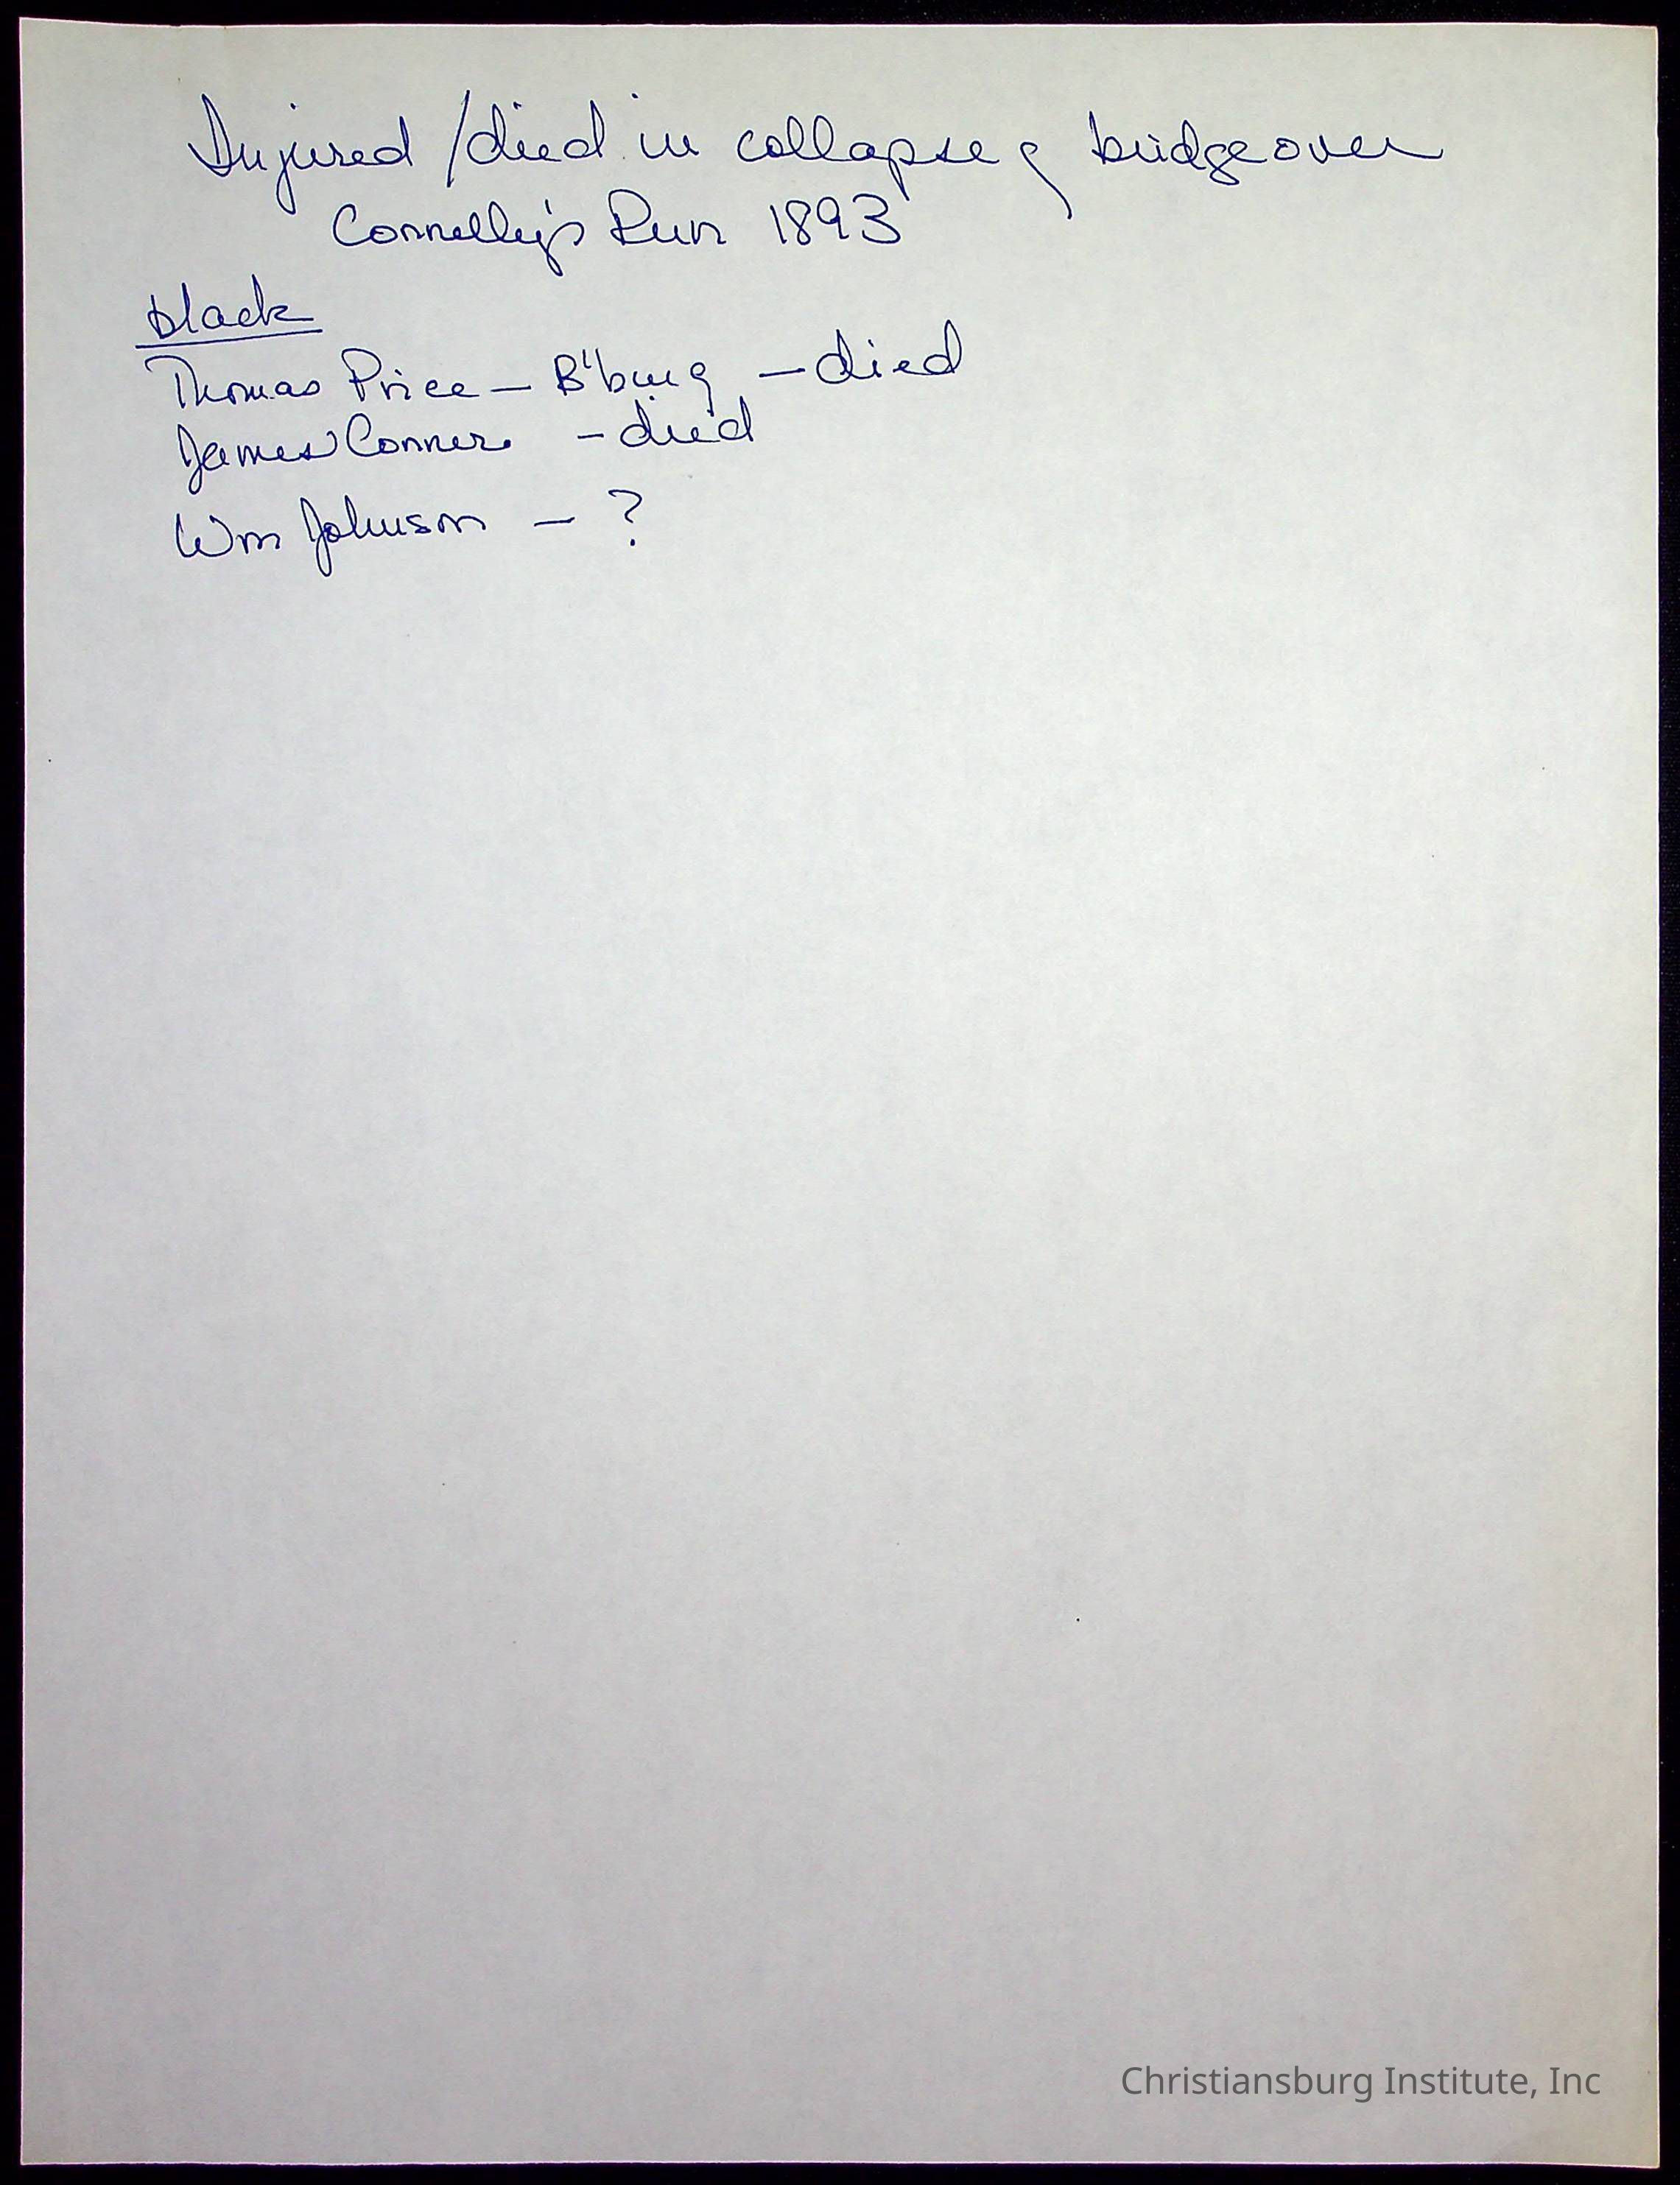 Injured /died in collapse of bridge over
Connelly's Run 1893
black
Thomas Price – B'burg – died
James Conner – died
Wm Johnson – ?
Christiansburg Institute, Inc